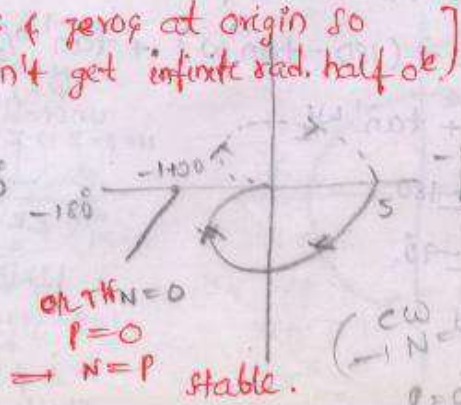 & zeros at origin so
n't get infinite rad. half
-1+j0
-180°
5
N=0
P=0
→ N=P
stable.
CW
N